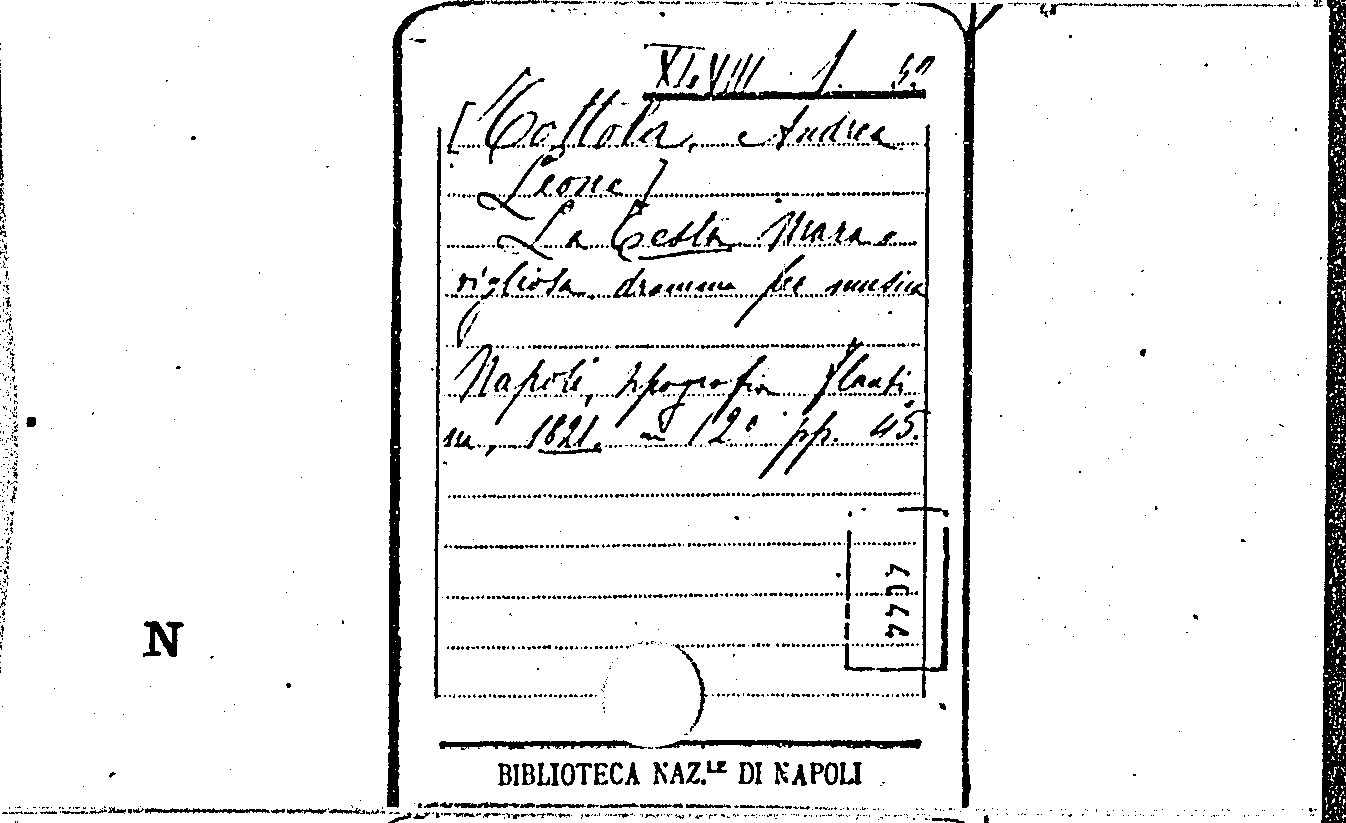 XLVIII. f. 52
[Tottola, Andrea
Leone]
La Testa mara-
vigliosa dramma per musica
Napoli, tipografia Flauti
na, 1821. in 12° pp. 45.
N
BIBLIOTECA NAZ.LE DI NAPOLI